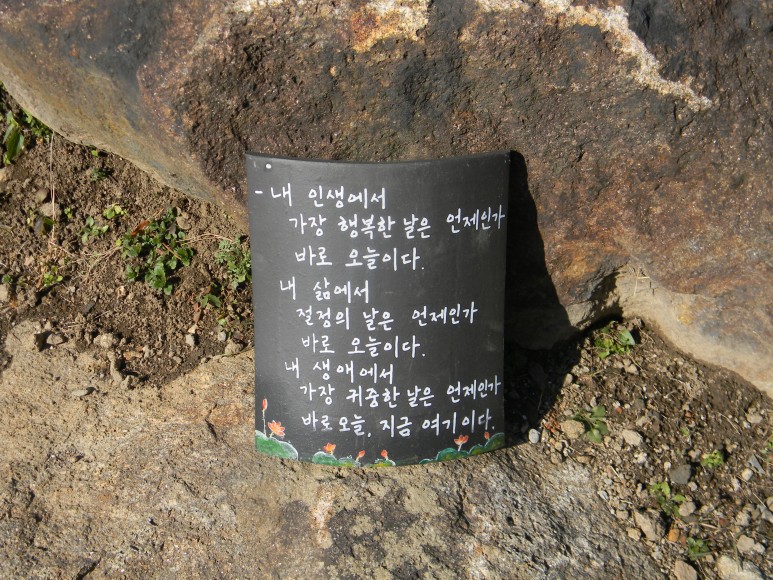 - 내 인생에서
가장 행복한 날은 언제인가
바로 오늘이다.
내 삶에서
절정의 날은 언제인가
바로 오늘이다.
내 생애에서
가장 귀중한 날은 언제인가
바로 오늘, 지금 여기이다.